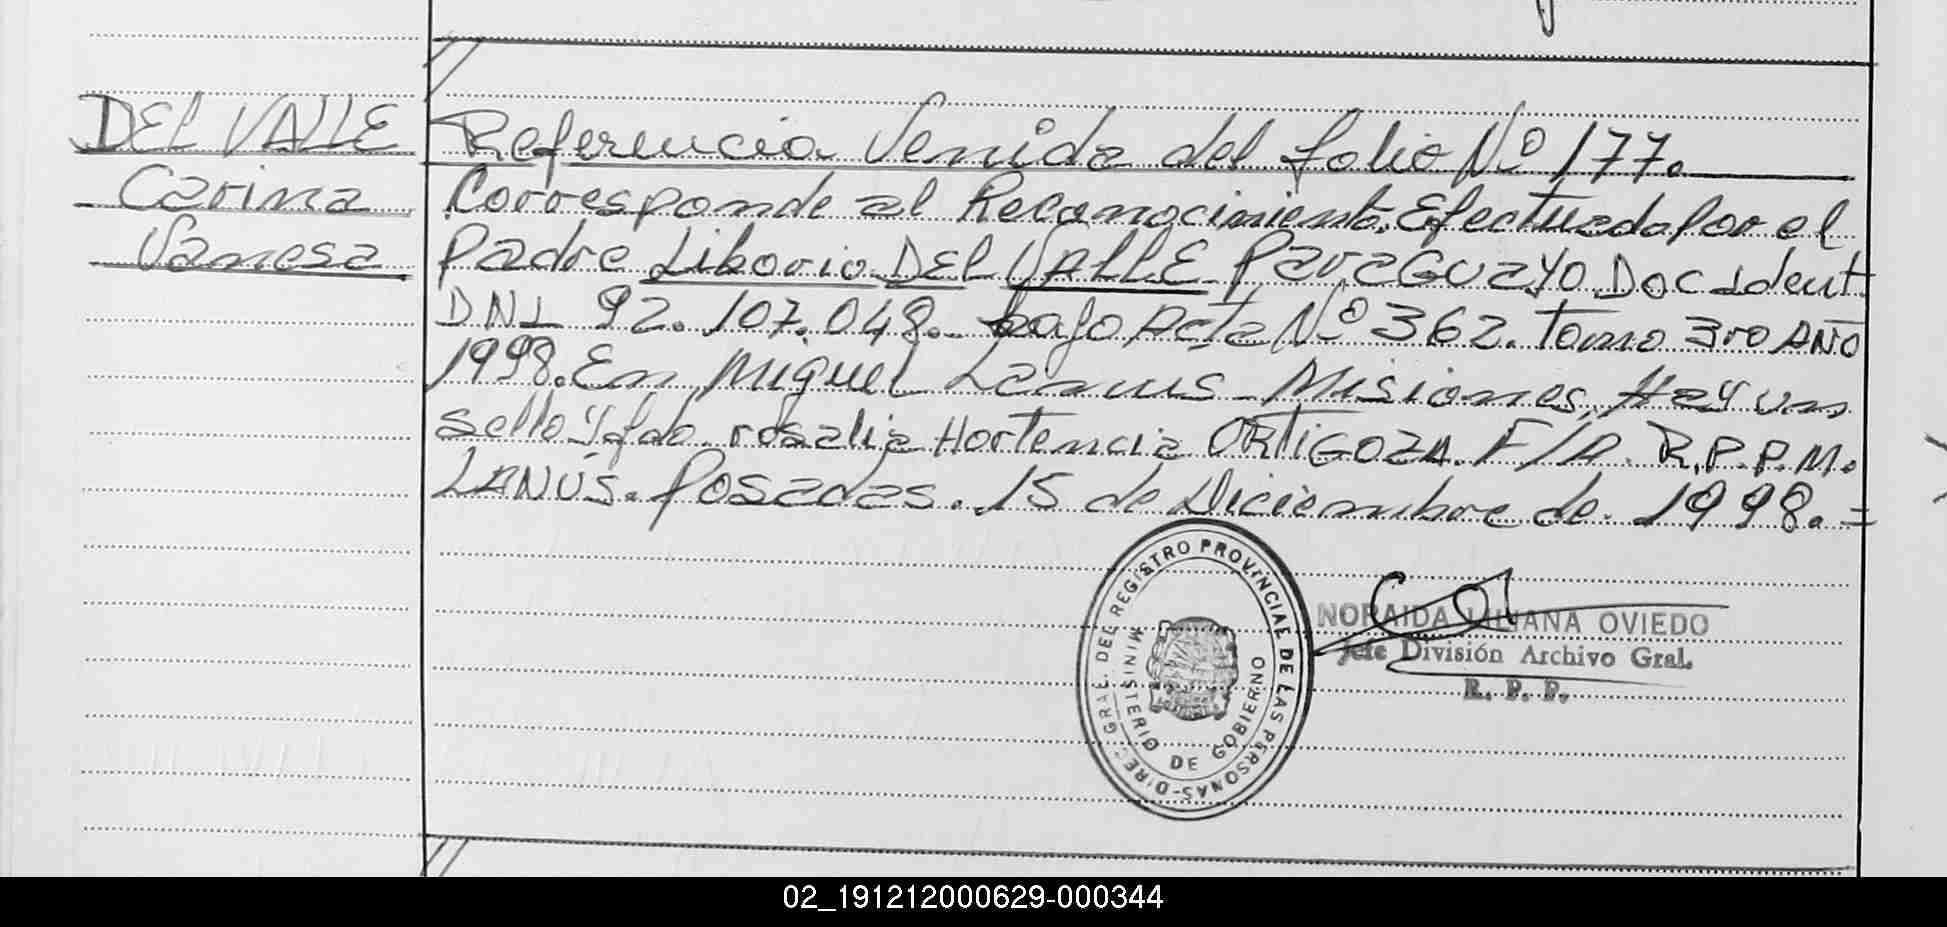 DEL VALLE
Carina
Vanesa
Referencia Venida del folio Nº 177.
Corresponde al Reconocimiento. Efectuado por el
Padre Liborio DEL VALLE Paraguayo. Doc ident.
DNI 92.107.048. bajo Acta Nº 362. Tomo 3ro AÑO
1998. En Miguel Lanus - Misiones, Hay un,
sello y fdo. rosalia Hortencia ORTIGOZA. F/A. R.P.P.M.
LANÚS. Posadas. 15 de Diciembre de. 1998. =
DIREC. GRAL. DEL REGISTRO PROVINCIAL DE LAS PERSONAS-
MINISTERIO DE GOBIERNO
NORAIDA LILIANA OVIEDO
Jefe División Archivo Gral.
R. P. P.
02_191212000629-000344